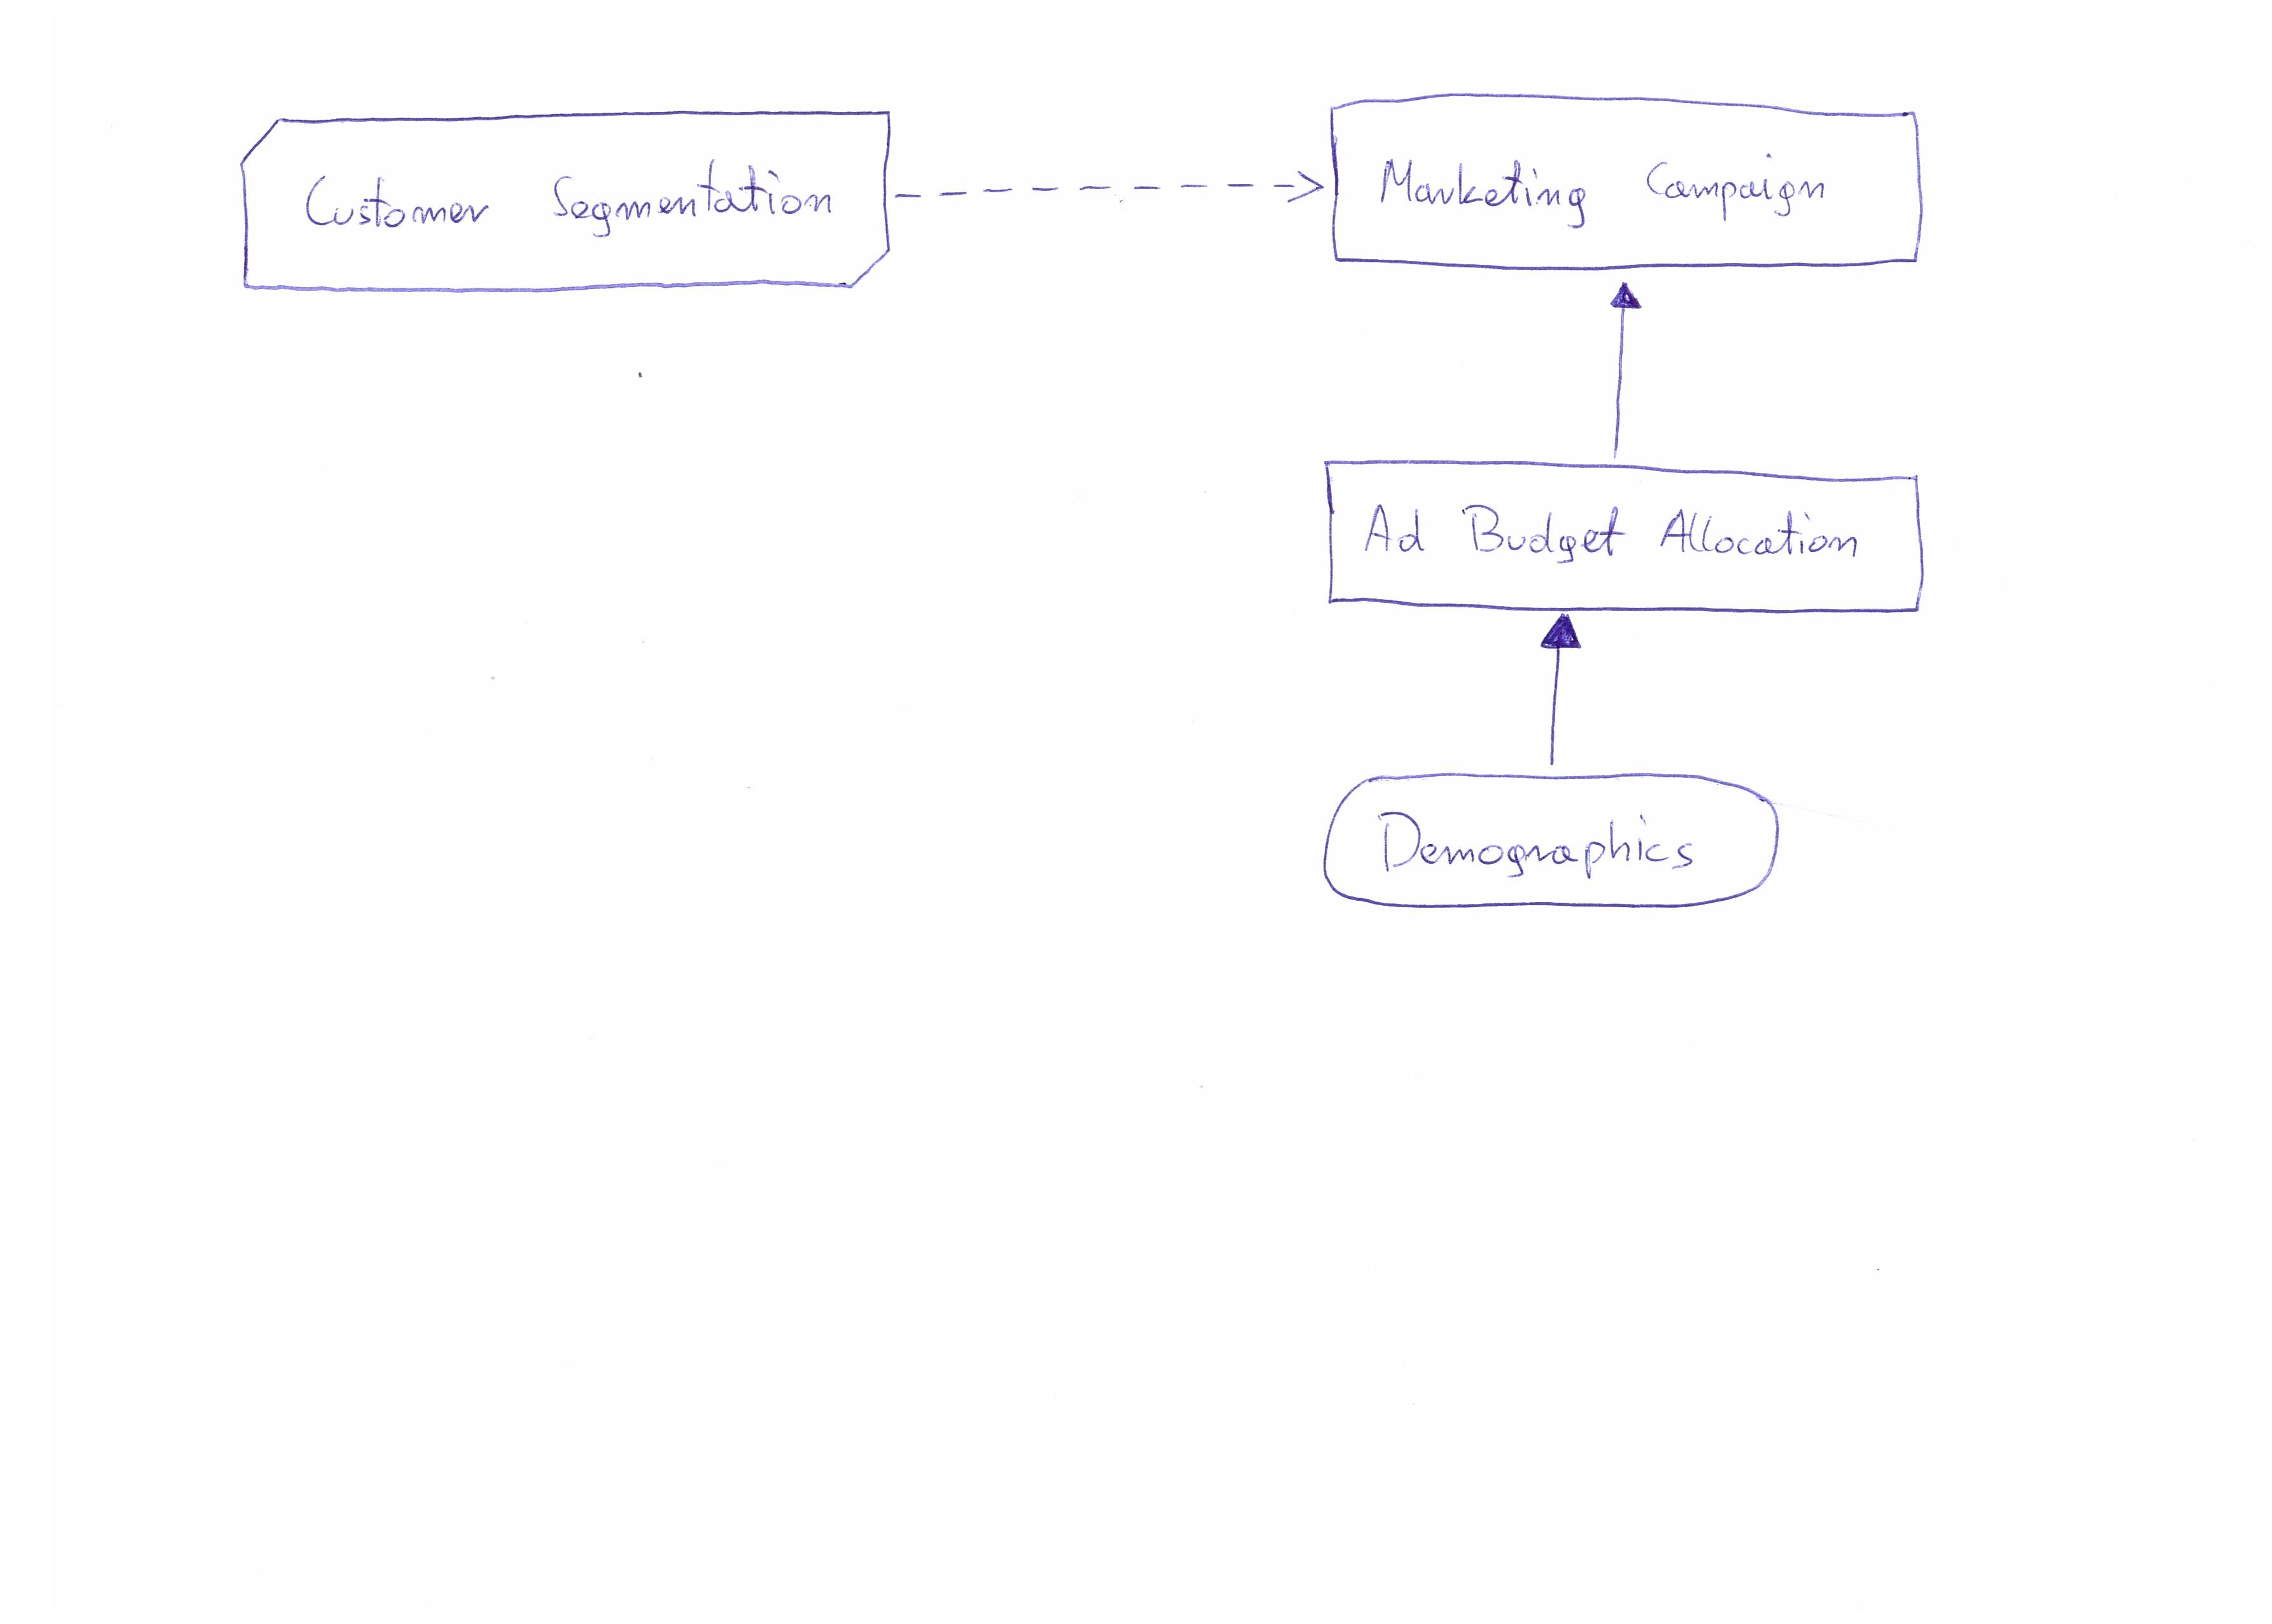 Customer Segmentation
Marketing Campaign
Ad Budget Allocation
Demographics